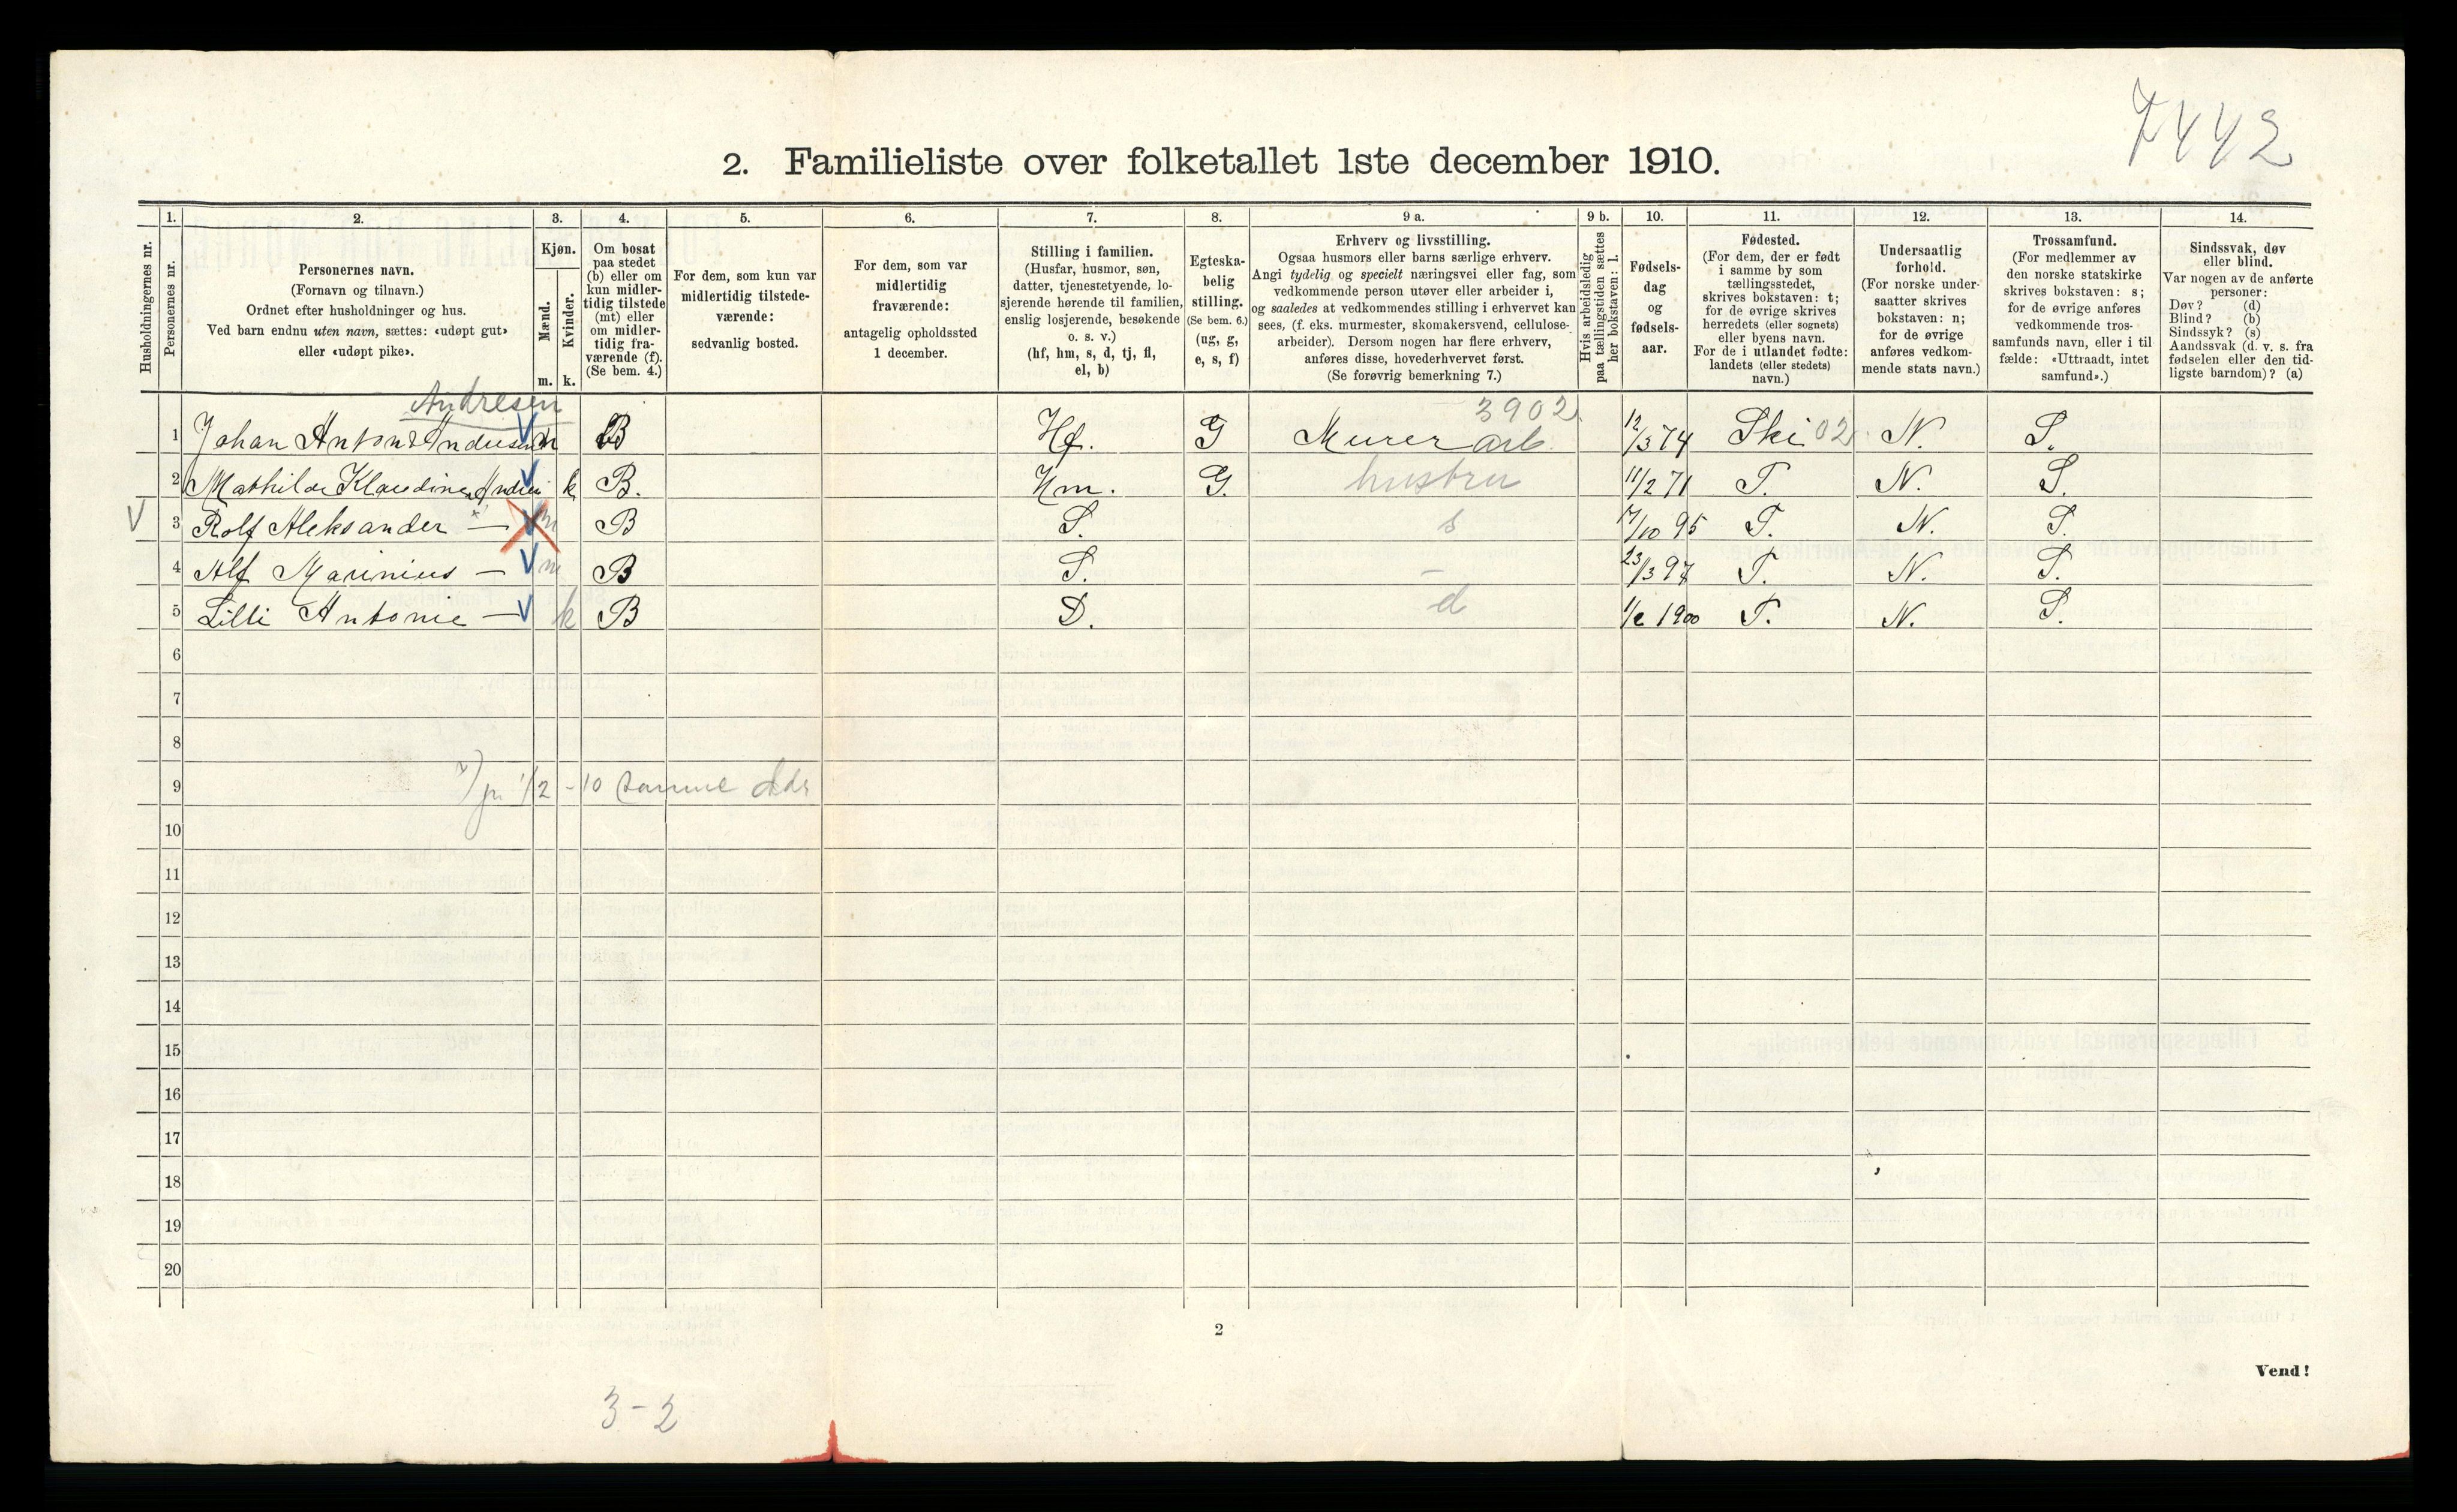 7442
2. Familieliste over folketallet 1ste december 1910.
Husholdningernes nr.
1. Personernes nr.
2. Personernes navn. (Fornavn og tilnavn.) Ordnet efter husholdninger og hus. Ved barn endnu uten navn, sættes: «udøpt gut» eller «udøpt pike».
3. Kjøn. Mænd. m. Kvinder. k.
4. Om bosat paa stedet (b) eller om kun midler-tidig tilstede (mt) eller om midler-tidig fra-værende (f). (Se bem. 4.)
5. For dem, som kun var midlertidig tilstede-værende: sedvanlig bosted.
6. For dem, som var midlertidig fraværende: antagelig opholdssted 1 december.
7. Stilling i familien. (Husfar, husmor, søn, datter, tjenestetyende, lo-sjerende hørende til familien, enslig losjerende, besøkende o. s. v.) (hf, hm, s, d, tj, fl, el, b)
8. Egteska-belig stilling. (Se bem. 6.) (ug, g, e, s, f)
9 a. Erhverv og livsstilling. Ogsaa husmors eller barns særlige erhverv. Angi tydelig og specielt næringsvei eller fag, som vedkommende person utøver eller arbeider i, og saaledes at vedkommendes stilling i erhvervet kan sees, (f. eks. murmester, skomakersvend, cellulose-arbeider). Dersom nogen har flere erhverv, anføres disse, hovederhvervet først. (Se forøvrig bemerkning 7.)
9 b. Hvis arbeidsledig paa tællingstiden sættes her bokstaven: l.
10. Fødsels-dag og fødsels-aar.
11. Fødested. (For dem, der er født i samme by som tællingsstedet, skrives bokstaven: t; for de øvrige skrives herredets (eller sognets) eller byens navn. For de i utlandet fødte: landets (eller stedets) navn.)
12. Undersaatlig forhold. (For norske under-saatter skrives bokstaven: n; for de øvrige anføres vedkom-mende stats navn.)
13. Trossamfund. (For medlemmer av den norske statskirke skrives bokstaven: s; for de øvrige anføres vedkommende tros-samfunds navn, eller i til fælde: «Uttraadt, intet samfund».)
14. Sindssvak, døv eller blind. Var nogen av de anførte personer: Døv? (d) Blind? (b) Sindssyk? (s) Aandssvak (d. v. s. fra fødselen eller den tid-ligste barndom)? (a)
Andresen 3902
1 Johan Anton Andresen m B Hf. G Murer arb. 12/3 74 Ski 02 N. S.
2 Mathilde Klaudine k B. Hm. G. hustru 11/2 71 T. N. S.
3 Rolf Aleksander — m B S. s 17/10 95 T. N. S.
4 Alf Marinius — m B S. — 23/3 97 T. N. S.
5 Lilli Antonie — k B D. d 1/2 1900 T. N. S.
6
7
8
9 1/2 - 10 samme Adr
10
11
12
13
14
15
16
17
18
19
20
2
Vend!
3 - 2